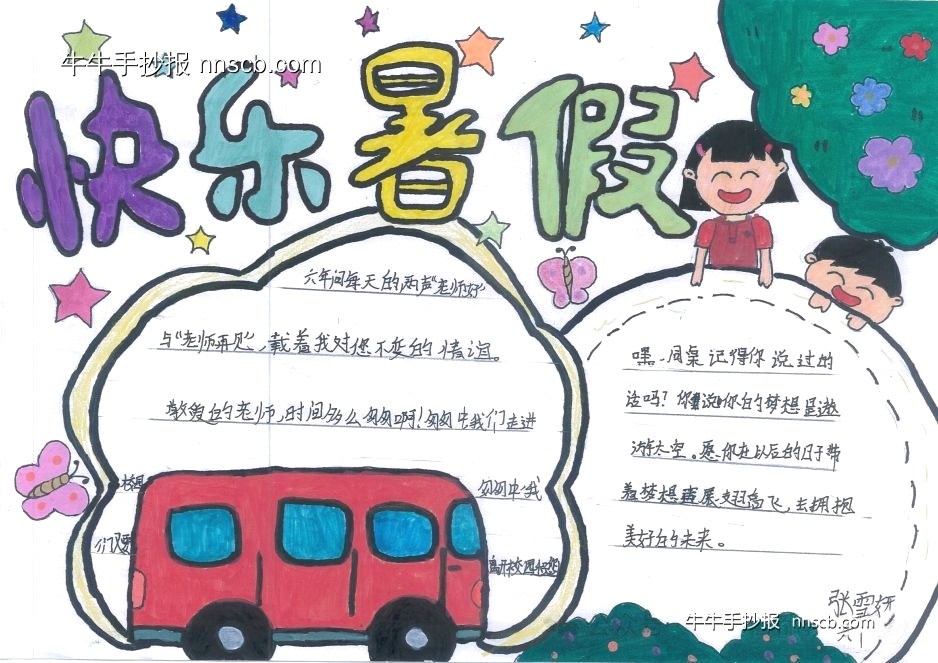 牛牛手抄报 nnscb.com
快乐暑假
六年间每天的两声“老师好”
与“老师再见”,载着我对您不变的情谊。
敬爱的老师,时间多么匆匆啊!匆匆中我们走进
校园 匆匆中我
们又要 离开校园
嘿、同桌记得你说过的
话吗?你说你的梦想是遨
游太空。愿你在以后的日子带
着梦想展翅高飞,去拥抱
美好的未来。
张雪妍
六1
牛牛手抄报 nnscb.com